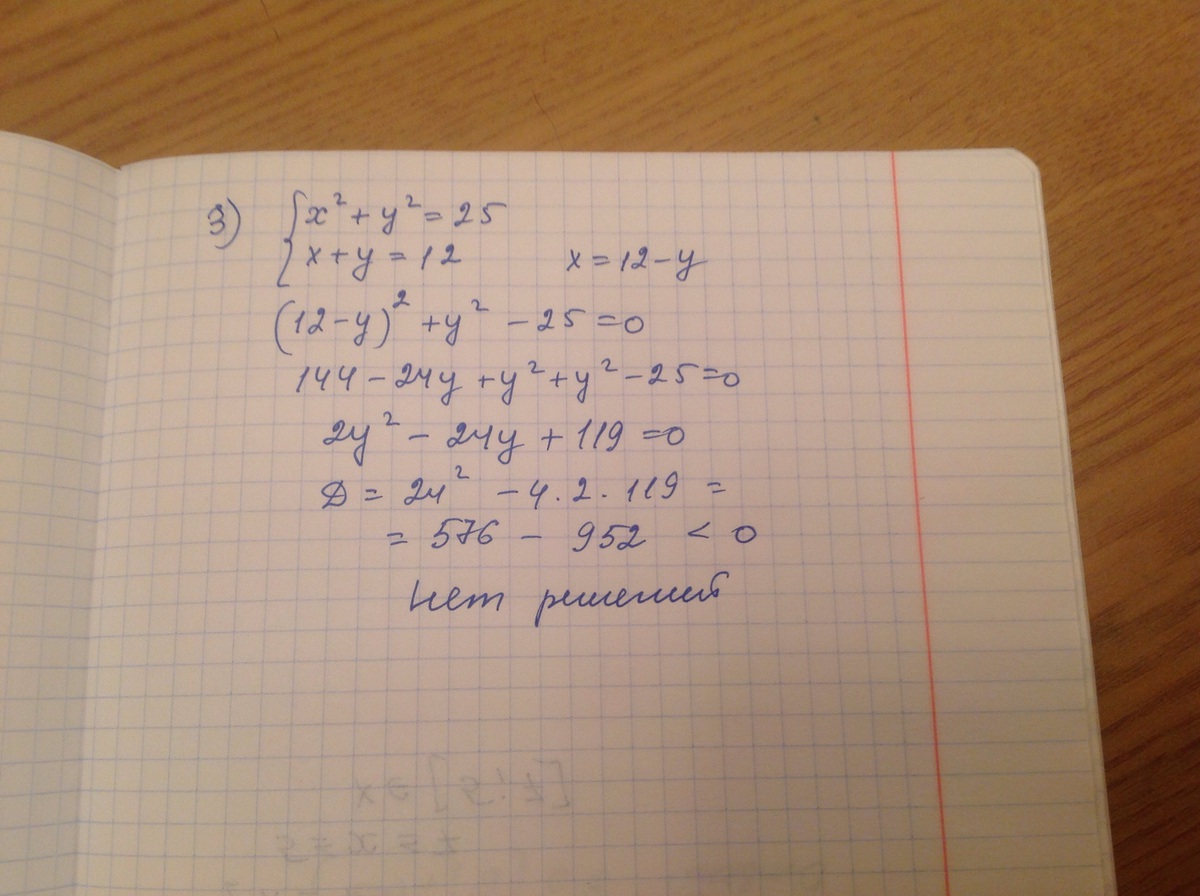 3) { x² + y² = 25
x + y = 12 x = 12 - y
(12 - y)² + y² - 25 = 0
144 - 24y + y² + y² - 25 = 0
2y² - 24y + 119 = 0
D = 24² - 4 · 2 · 119 =
= 576 - 952 < 0
Нет решений